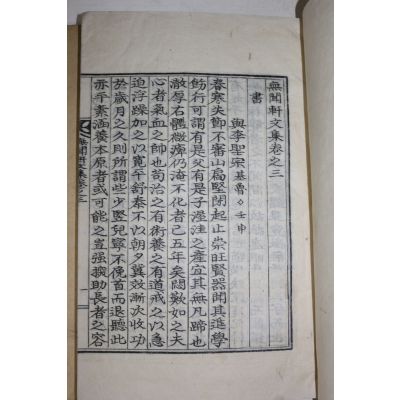 無聞軒文集卷之三
書
與李聖宗基魯◇壬申
春寒失節不審山扃堅閉起止崇旺賢器聞其進學
飭行可謂有是父有是子渥洼之產宜其無凡蹄也
敝厚右髖微痹仍淹不化者已五年矣悶歎如之夫
心者氣血之帥也苟治之有術養之有道戒之以急
迫浮躁加之以寬平舒泰不以朝夕冀效漸次收功
於歲月之久則所謂些少竪兒寧不俛首而退聽此
亦平素涵養本原者或可能之豈强揠助長者之容
無聞軒文集卷之三